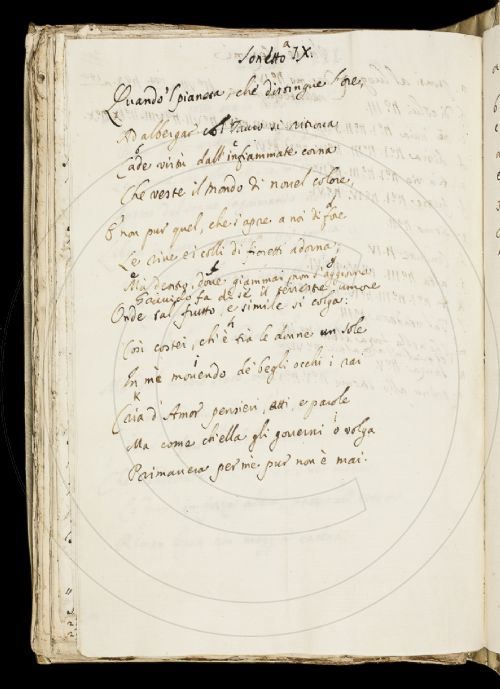 Sonetto a IX.
Quando 'l pianeta, che distingue l'ore,
Ad albergar col Tauro si ritrova
b c
Cade virtù dall' infiammate corna
Che veste il mondo di novel colore,
d
E non pur quel, che s'apre a noi di fore
Le rive e i colli di fioretti adorna;
e f g
Mà dentro, dove giammai non s'aggiorna
Gravido fa di se il terrestre umore
Onde tal frutto, e simile si colga:
h
Così costei, ch'è tra le donne un sole
i
In me movendo de' begli occhi i rai
k
Cria d'Amor pensieri, atti, e parole
Ma come ch'ella gli governi o volga
Primavera per me pur non è mai.